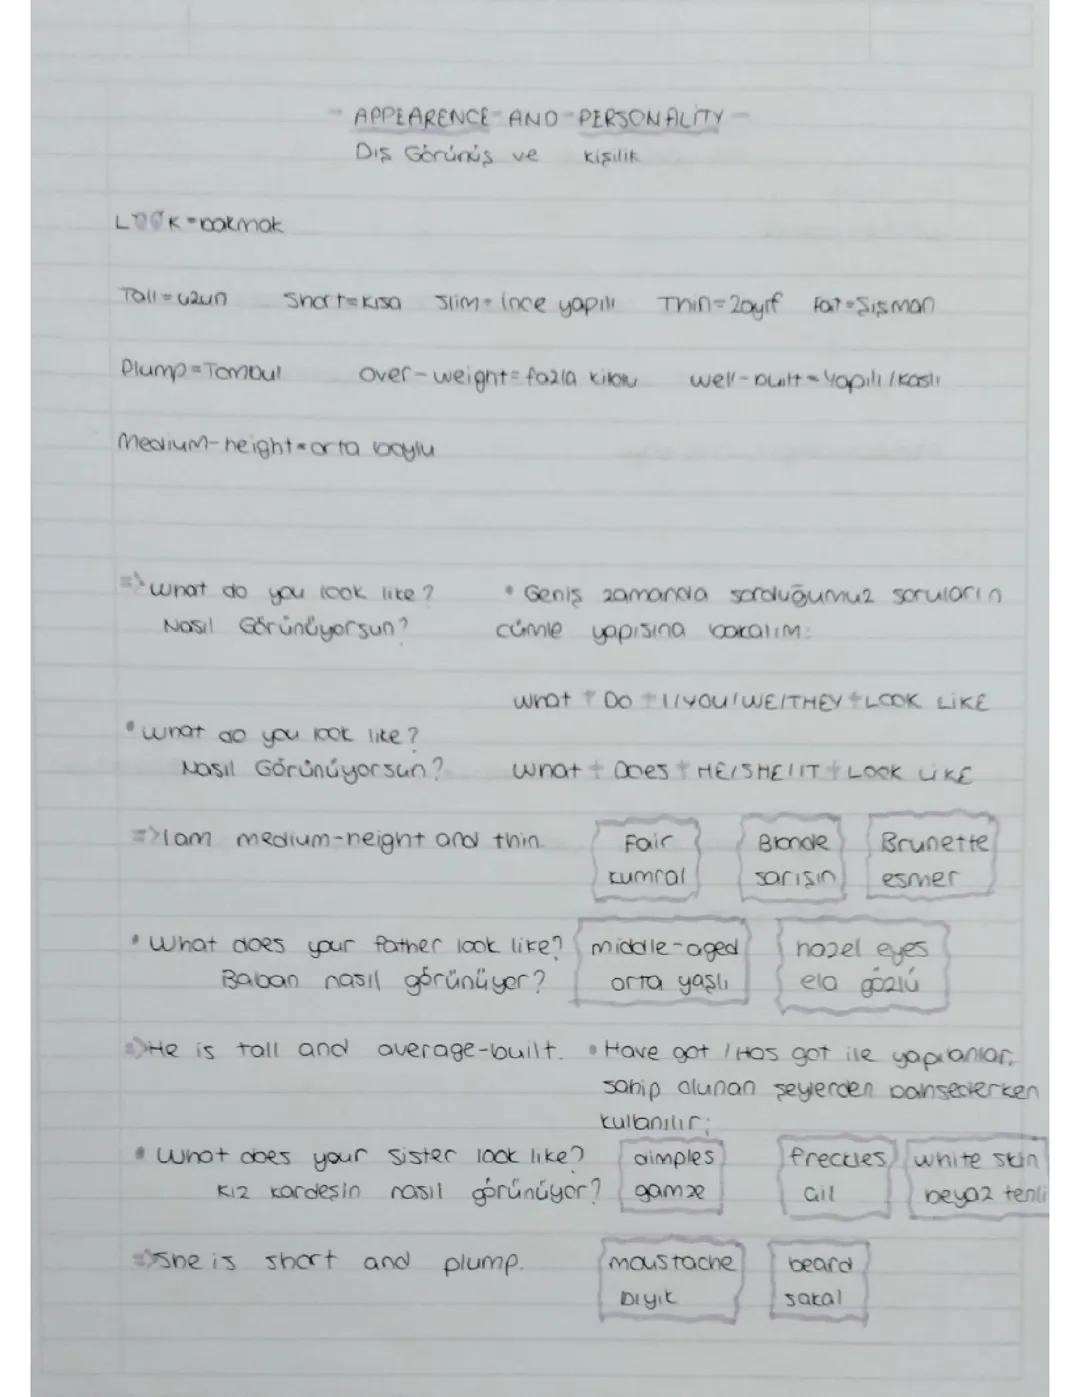 - APPEARENCE - AND - PERSONALİTY -
Dış Görünüş ve kişilik
LOOK = bakmak
Tall = uzun Short = kısa Slim = ince yapılı Thin = zayıf Fat = Şişman
Plump = Tombul over-weight = fazla kilolu well-built = Yapılı / kaslı
Medium-height = orta boylu
=> What do you look like? • Geniş zamanda sorduğumuz soruların
Nasıl Görünüyorsun? cümle yapısına bakalım:
What + Do + I/YOU/WE/THEY + LOOK LİKE
• What do you look like?
Nasıl Görünüyorsun? What + Does + HE/SHE/IT + LOOK LİKE
=> I am medium-height and thin. Fair Blonde Brunette
kumral sarışın esmer
• What does your father look like? middle-aged hazel eyes
Baban nasıl görünüyor? orta yaşlı ela gözlü
=> He is tall and average-built. • Have got / Has got ile yapılanlar,
sahip olunan şeylerden bahsederken
kullanılır;
• What does your sister look like? dimples freckles white skin
Kız kardeşin nasıl görünüyor? gamze çil beyaz tenli
=> She is short and plump. moustache beard
bıyık sakal